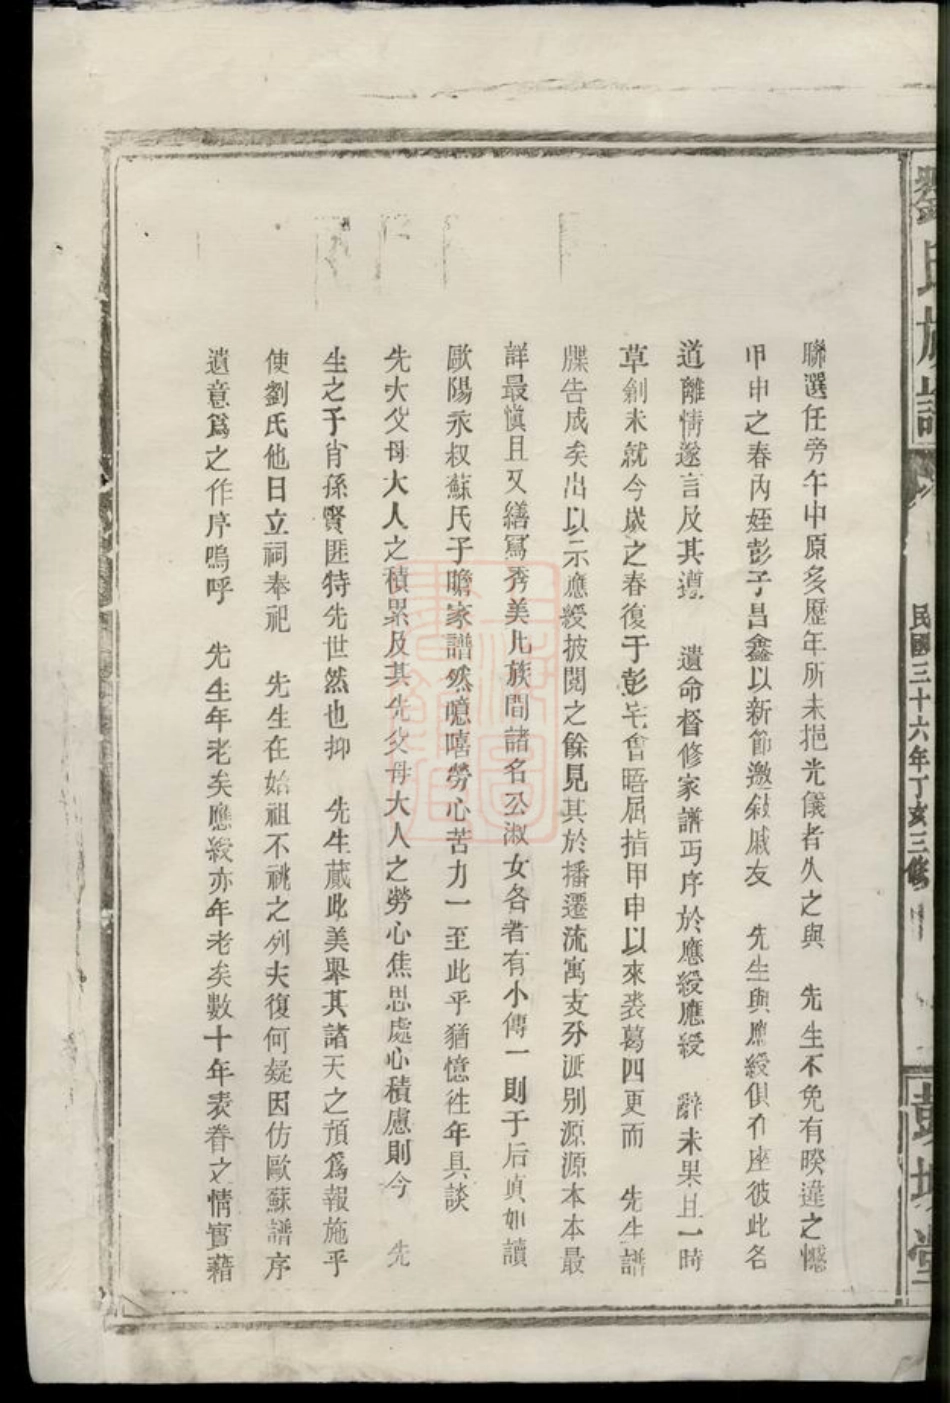 劉氏族譜
民國三十六年丁亥三修
彭城堂
聯選任旁午中原多歷年所未挹光儀者久之與　先生不免有暌違之憾
甲申之春內姪彭子昌鑫以新節邀敍戚友　先生與應綬俱在座彼此各
道離情遂言及其遵　遺命督修家譜丐序於應綬應綬　辭未果且一時
草創未就今歲之春復于彭宅會晤屈指甲申以來裘葛四更而　先生譜
牒告成矣出以示應綬披閱之餘見其於播遷流寓支分派别源源本本最
詳最愼且又繕寫秀美凡族間諸名公淑女各著有小傳一則于后眞如讀
歐陽永叔蘇氏子瞻家譜然噫嘻勞心苦力一至此乎猶憶往年具談
先大父母大人之積累及其先父母大人之勞心焦思處心積慮則今　先
生之子肖孫賢匪特先世然也抑　先生蕆此美舉其諸天之預爲報施乎
使劉氏他日立祠奉祀　先生在始祖不祧之列夫復何疑因仿歐蘇譜序
遺意爲之作序嗚呼　先生年老矣應綬亦年老矣數十年表眷之情實藉